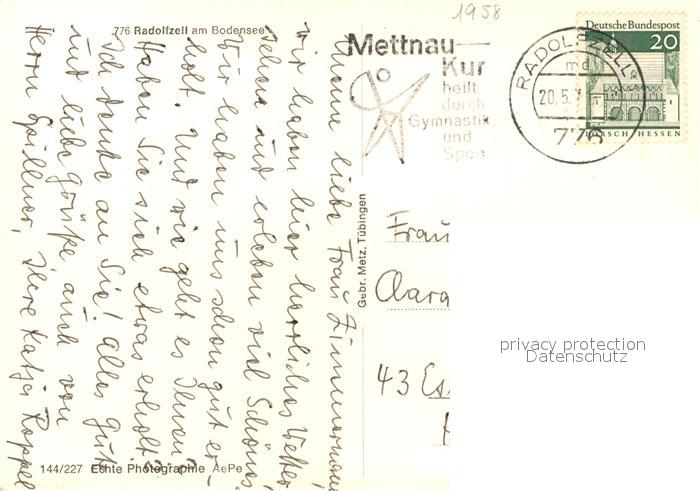 1958
776 Radolfzell am Bodensee
Mettnau-
Kur
heilt
durch
Gymnastik
und
Sport
RADOLFZELL
md
20.5.
776
Deutsche Bundespost
20
LORSCH/HESSEN
Meine liebe Frau Zimmermann
wir haben hier herrliches Wetter,
sehen und erleben viel Schönes,
Wir haben uns schon gut er-
holt. Und wie geht es Ihnen?
Haben Sie sich etwas erholt?
Ich denke an Sie! Alles Gute
und liebe Grüße auch von
Herrn Spillner, Ihre Katja Roppel
Gebr. Metz, Tübingen
Frau
43 Es
144/227 Echte Photographie AePe
privacy protection
Datenschutz